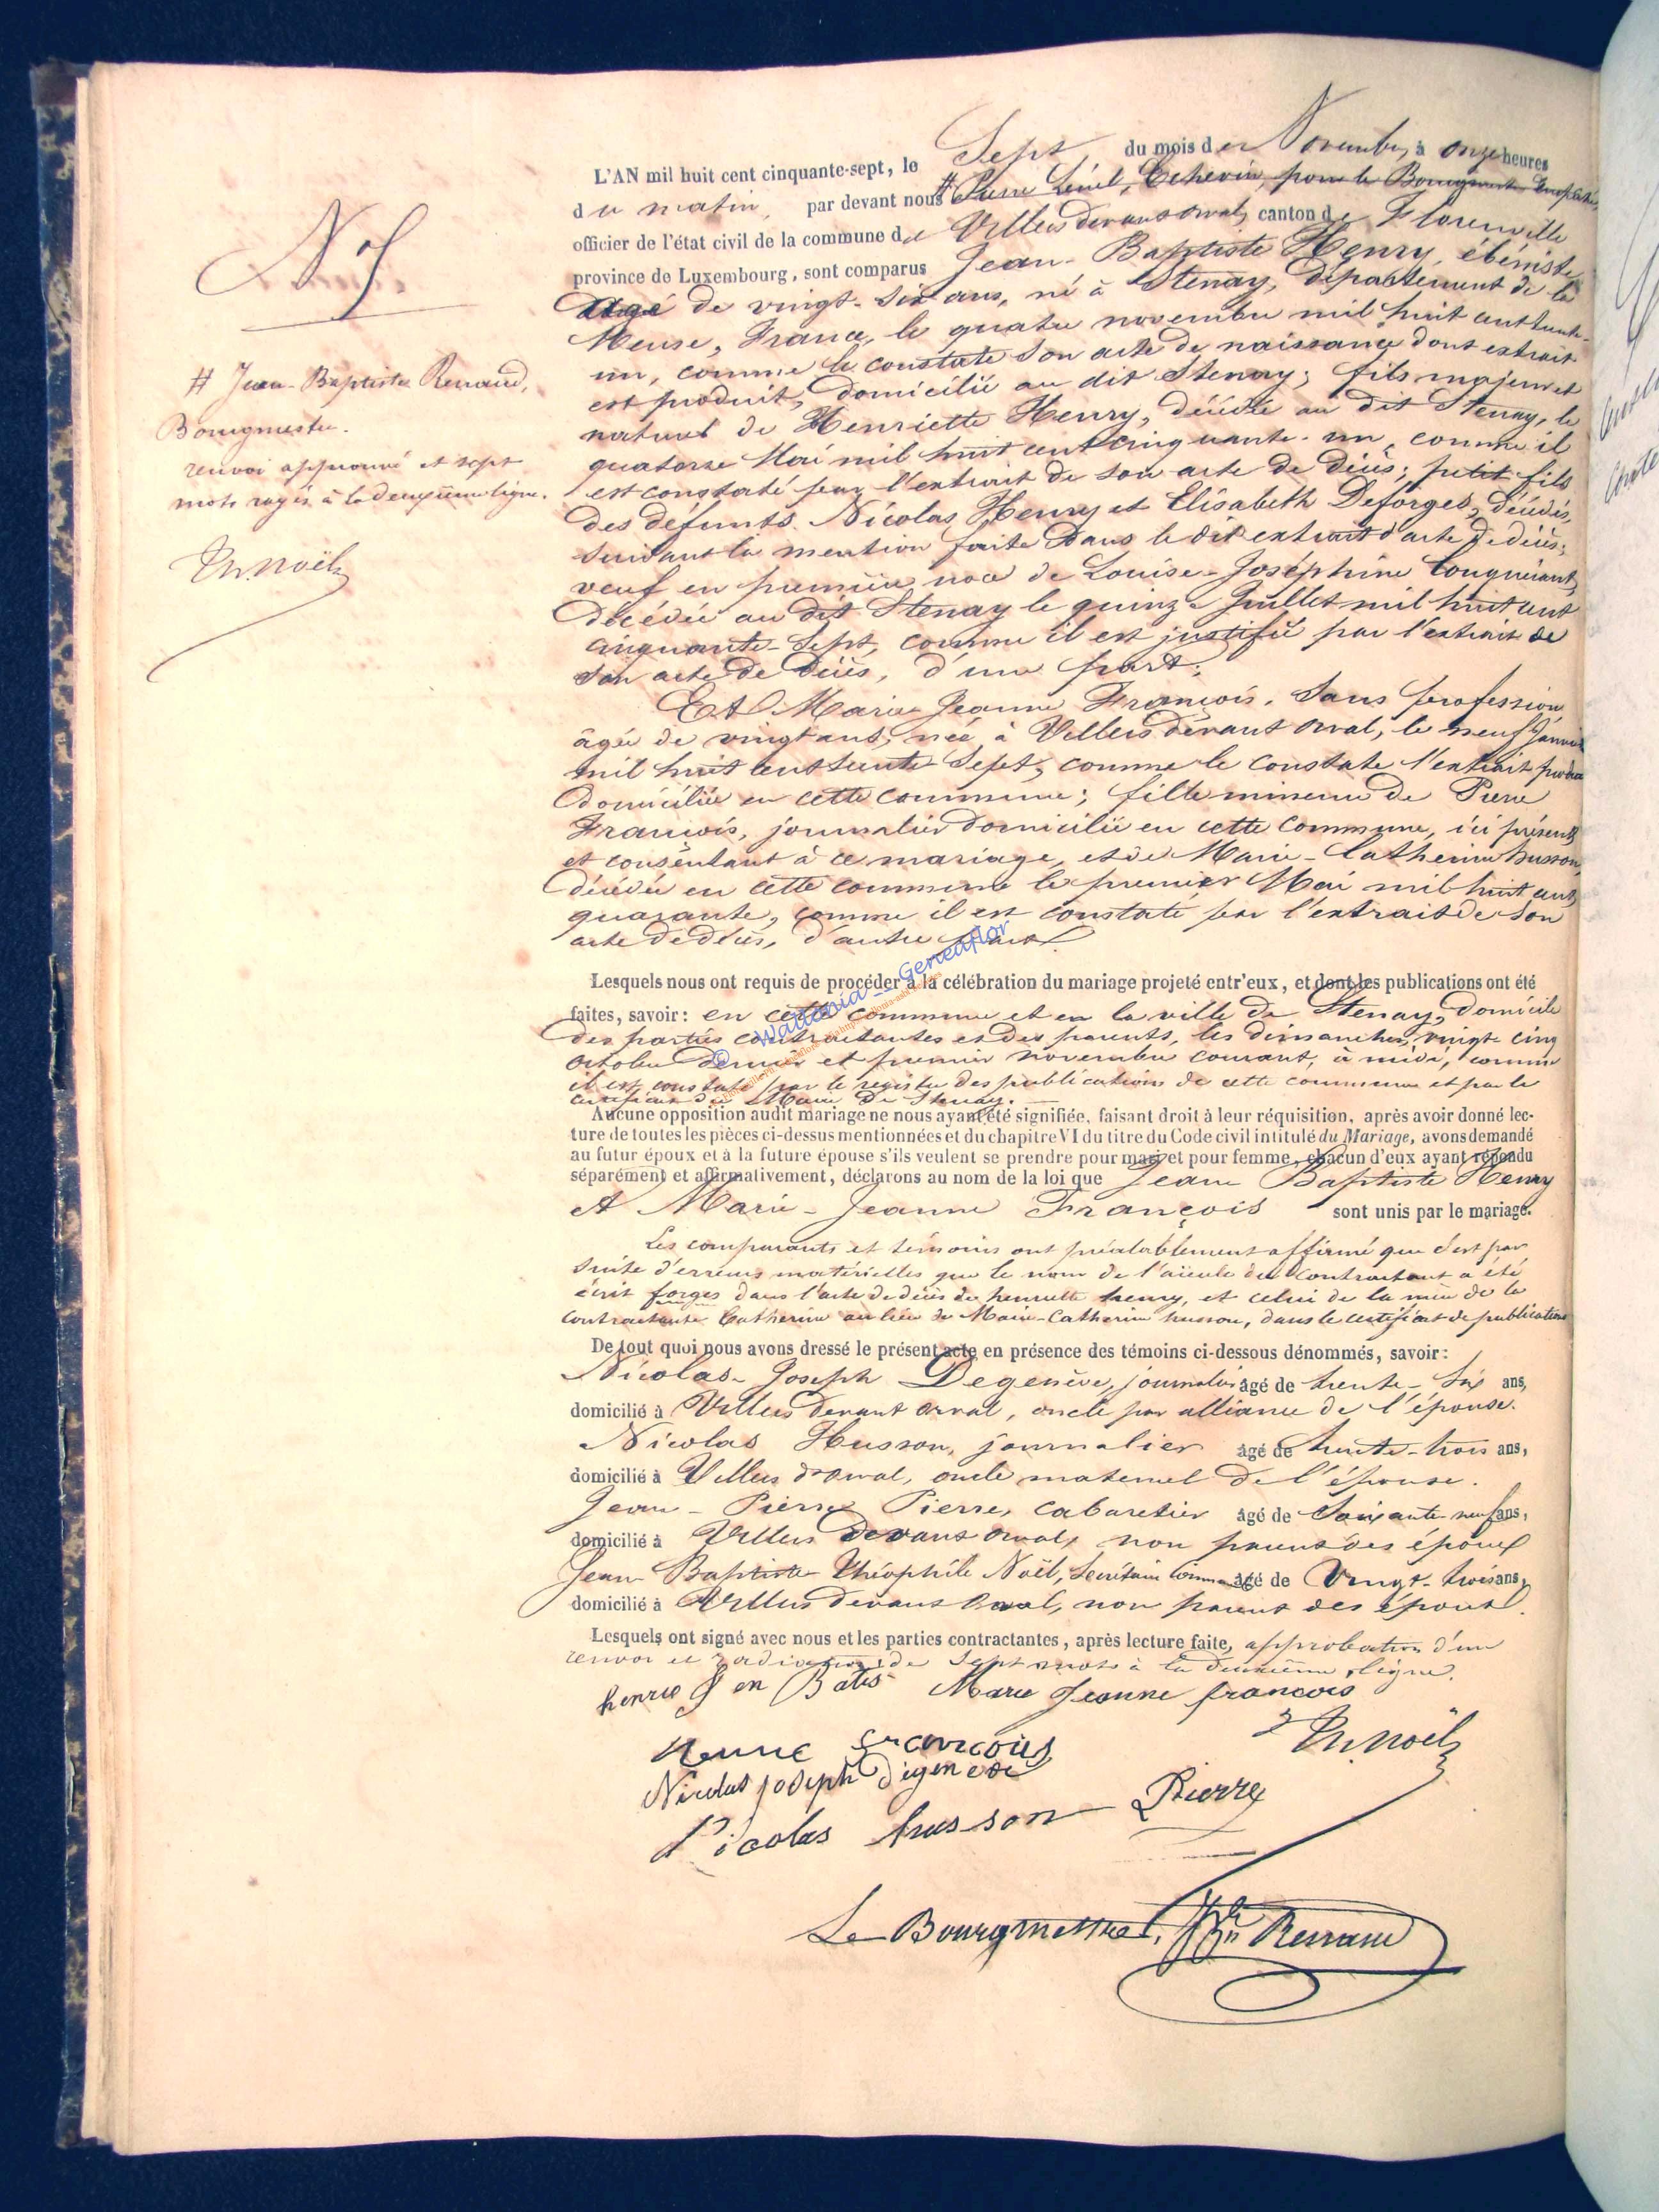 L'AN mil huit cent cinquante-sept, le Sept du mois de Novembre, à onze heures
du matin, par devant nous # Pierre Echevin, pour le Bourgmestre
officier de l'état civil de la commune de Villers devant orval, canton de Florenville
province de Luxembourg, sont comparus Jean-Baptiste Henry, ébéniste
âgé de vingt-six ans, né à Stenay, département de la
Meuse, France, le quatre novembre mil huit cent trente-
un, comme le constate son acte de naissance dont extrait
est produit, domicilié au dit Stenay; fils majeur et
naturel de Henriette Henry, décédée au dit Stenay, le
quatorze Mai mil huit cent cinquante-un, comme il
est constaté par l'extrait de son acte de décès; petit fils
des défunts Nicolas Henry et Elisabeth Deforges, décédés,
suivant la mention faite dans le dit extrait d'acte de décès;
veuf en première noce de Louise-Joséphine
décédée au dit Stenay le quinze Juillet mil huit cent
cinquante-sept, comme il est justifié par l'extrait de
son acte de décès, d'une part;
Et Marie Jeanne François, sans profession
âgée de vingt ans, née à Villers devant orval, le neuf Janvier
mil huit cent trente-sept, comme le constate l'extrait produit
domiciliée en cette commune; fille mineure de Pierre
François, journalier domicilié en cette commune, ici présent
et consentant à ce mariage, et de Marie-Catherine husson,
décédée en cette commune le premier Mai mil huit cent
quarante, comme il est constaté par l'extrait de son
acte de décès, d'autre part.
Lesquels nous ont requis de procéder à la célébration du mariage projeté entr'eux, et dont les publications ont été
faites, savoir: en cette commune et en la ville de Stenay, domicile
des parties contractantes et des parents, les dimanches, vingt cinq
octobre dernier et premier novembre courant, à midi, comme
il est constaté par le registre des publications de cette commune et par le
certificat du Maire de Stenay.
Aucune opposition audit mariage ne nous ayant été signifiée, faisant droit à leur réquisition, après avoir donné lec-
ture de toutes les pièces ci-dessus mentionnées et du chapitre VI du titre du Code civil intitulé du Mariage, avons demandé
au futur époux et à la future épouse s'ils veulent se prendre pour mari et pour femme, chacun d'eux ayant répondu
séparément et affirmativement, déclarons au nom de la loi que Jean Baptiste Henry
et Marie-Jeanne François sont unis par le mariage.
Les comparants et témoins ont préalablement affirmé que c'est par
suite d'erreurs matérielles que le nom de l'aïeule du contractant a été
écrit forges dans l'acte de décès de henriette henry, et celui de la mère de la
contractante Catherine au lieu de Marie-Catherine husson, dans le certificat de publication
De tout quoi nous avons dressé le présent acte en présence des témoins ci-dessous dénommés, savoir:
Nicolas-Joseph Degenève, journalier âgé de trente-six ans,
domicilié à Villers devant orval, oncle par alliance de l'épouse.
Nicolas Husson, journalier âgé de trente-trois ans,
domicilié à Villers dt orval, oncle maternel de l'épouse.
Jean-Pierre Pierre, cabaretier âgé de Soixante-neuf ans,
domicilié à Villers devant orval, non parent des époux
Jean Baptiste Théophile Noël, Secrétaire communal âgé de Vingt-trois ans,
domicilié à Villers devant orval, non parent des époux.
Lesquels ont signé avec nous et les parties contractantes, après lecture faite, approbation d'un
renvoi et radiation de sept mots à la deuxième ligne.
Marie Jeanne francois
Th. Noël
francois
Nicolas joseph degeneve
Pierre
Nicolas husson
Le Bourgmestre, Renaud
# Jean-Baptiste Renaud,
Bourgmestre.
renvoi approuvé et sept
mots rayés à la deuxième ligne.
Th. Noël
© Wallonia -- Geneaflor